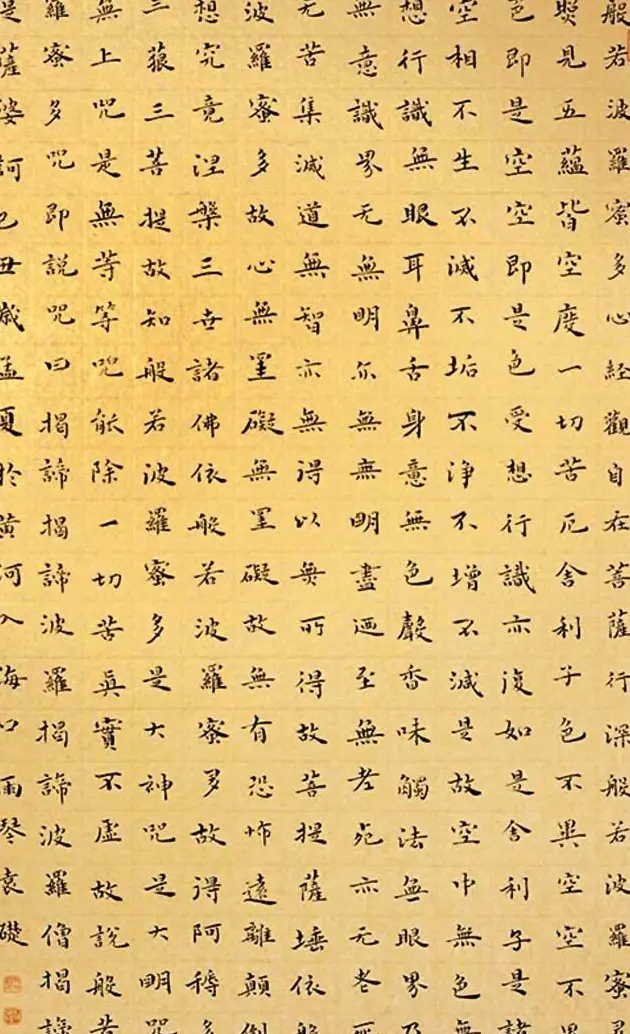 般若波羅蜜多心経觀自在菩薩行深般若波羅蜜
照見五蘊皆空度一切苦厄舍利子色不異空空不異
色即是空空即是色受想行識亦復如是舍利子是諸
空相不生不滅不垢不浄不增不減是故空中無色無
想行識無眼耳鼻舌身意無色聲香味觸法無眼界乃
無意識界无無明亦無無明盡迺至無老死亦无老死
无苦集滅道無智亦無得以無所得故菩提薩埵依般
波羅蜜多故心無罣礙無罣礙故無有恐怖遠離顛倒
想究竟涅槃三世諸佛依般若波羅蜜多故得阿耨多
三藐三菩提故知般若波羅蜜多是大神咒是大明咒
無上咒是無等等咒能除一切苦真實不虛故說般若
羅蜜多咒即說咒曰揭諦揭諦波羅揭諦波羅僧揭諦
是薩婆訶己丑歲孟夏於黃河入海口雨琴袁礎